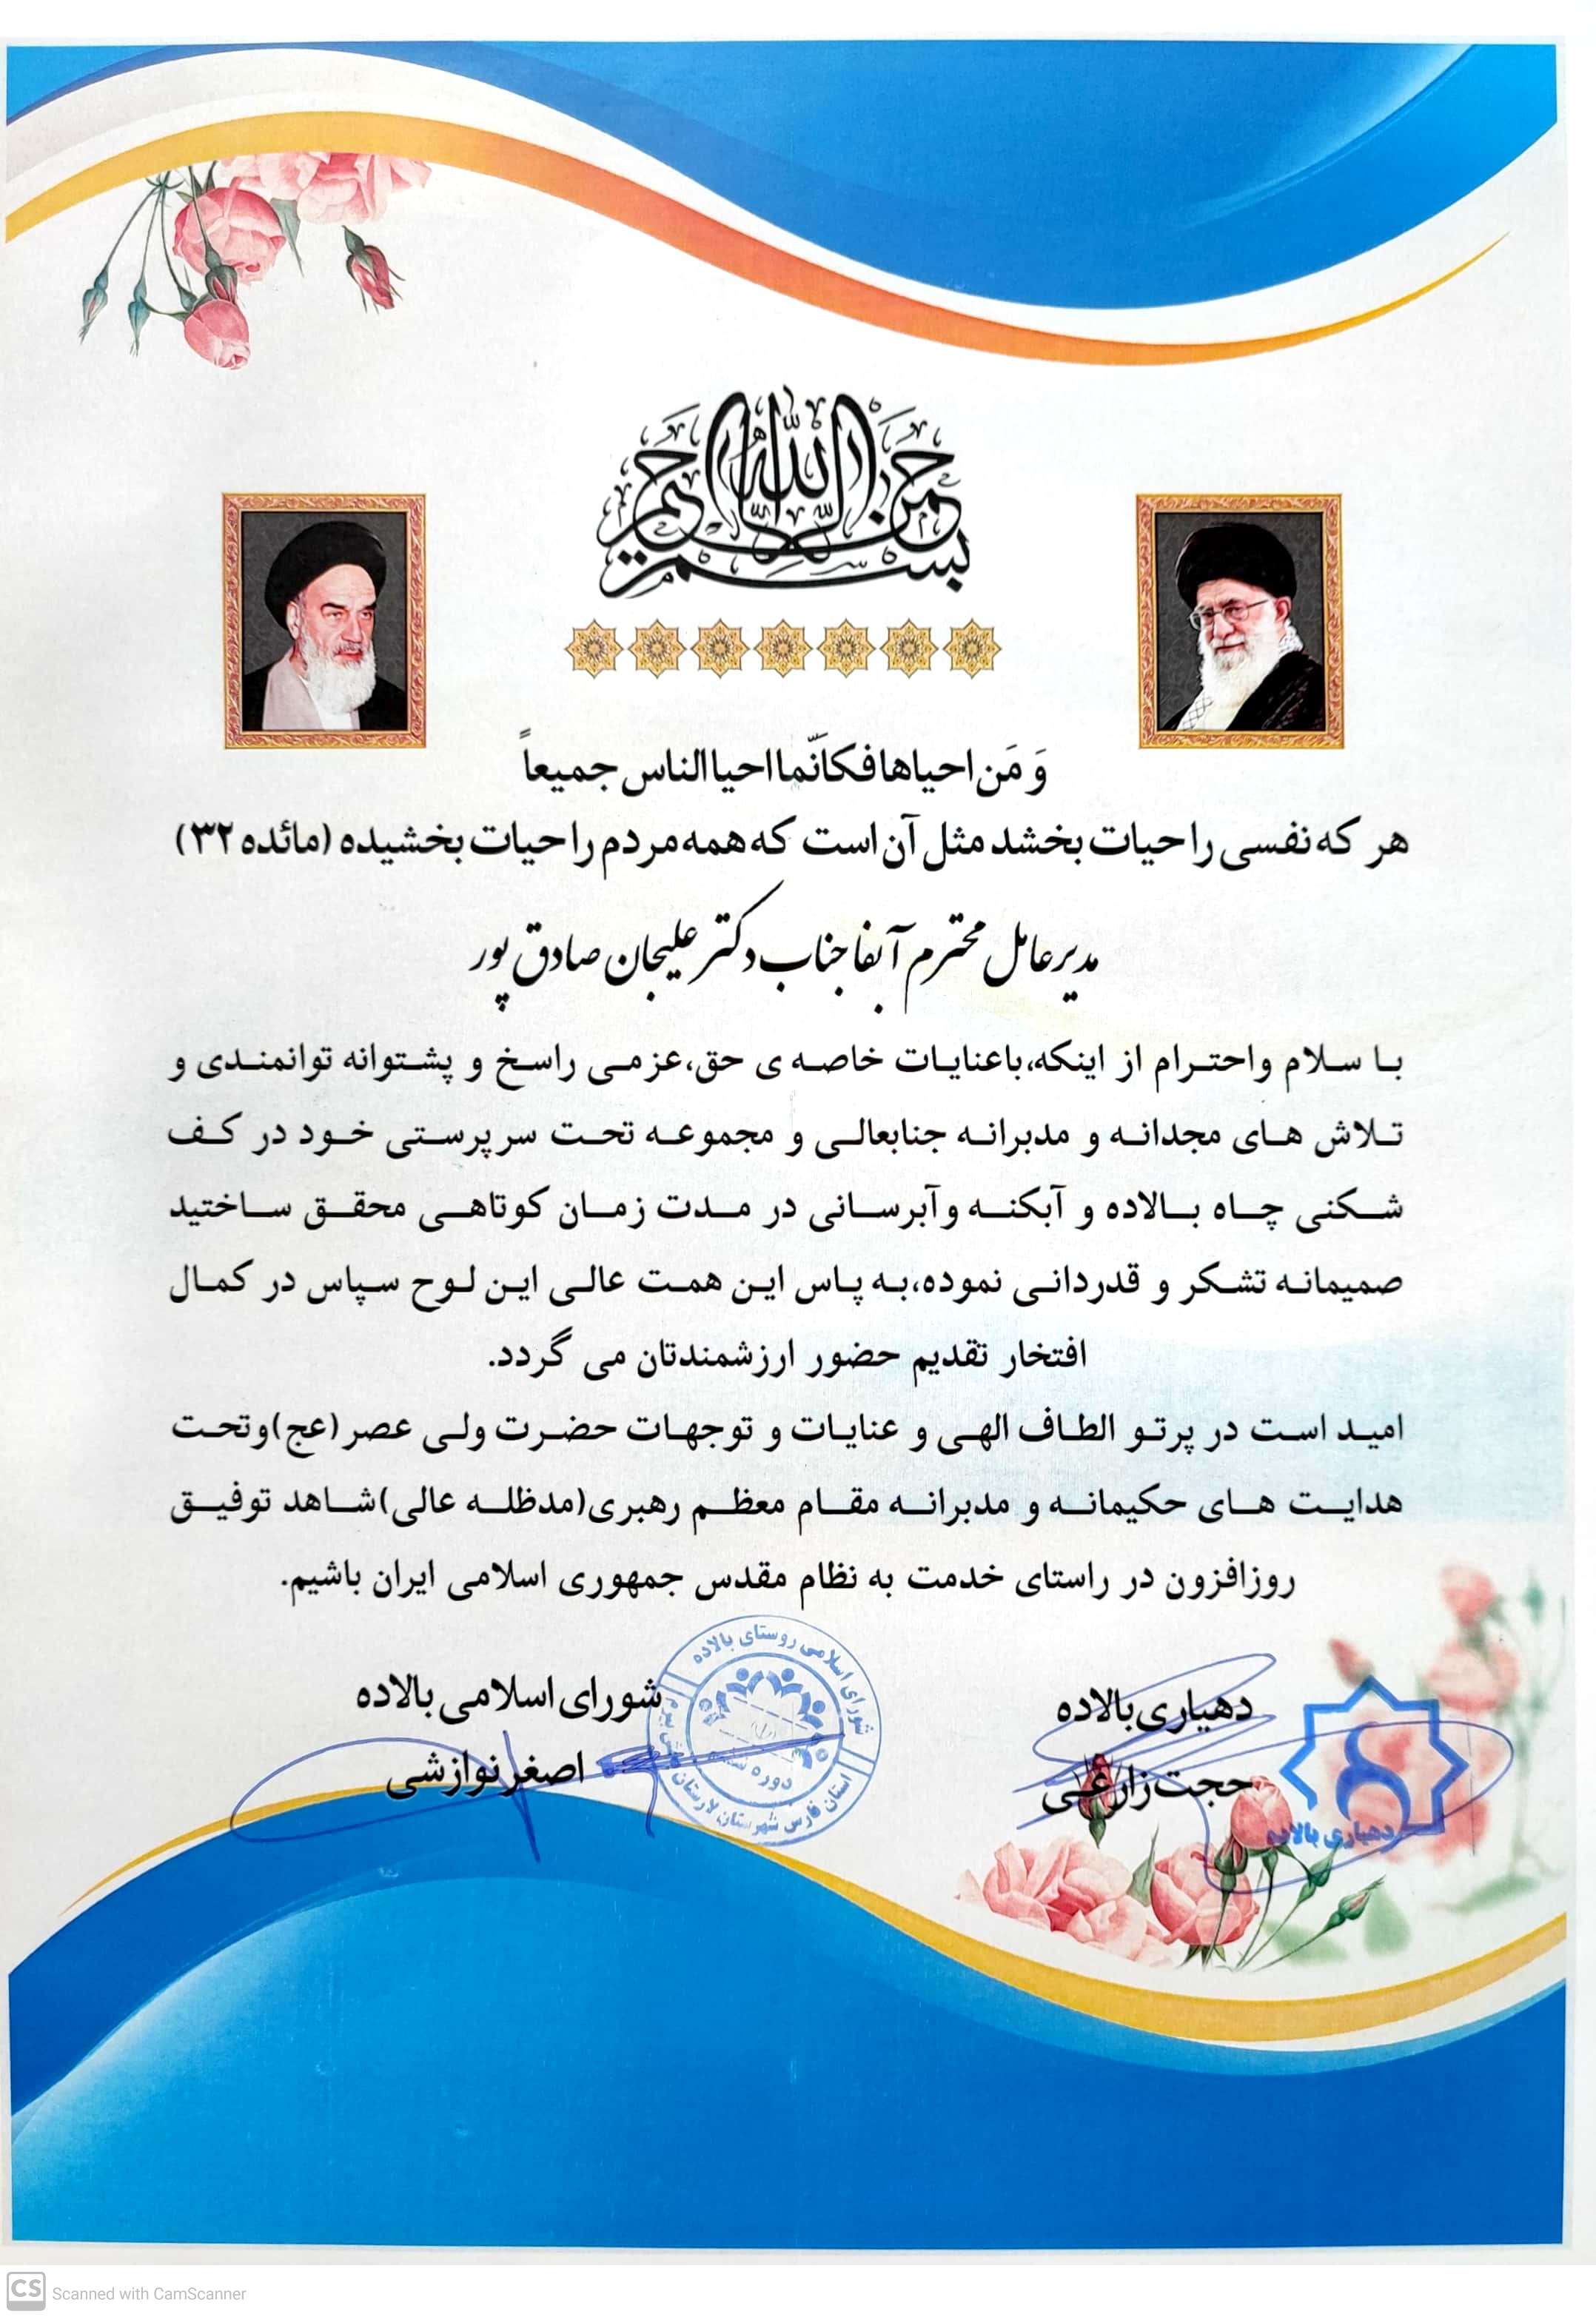 بسم الله الرحمن الرحیم
وَ مَن احیاها فکاَنّما احیا الناس جمیعاً
هر که نفسی را حیات بخشد مثل آن است که همه مردم را حیات بخشیده (مائده ۳۲)
مدیرعامل محترم آبفا جناب دکتر علیجان صادق پور
با سلام واحترام از اینکه،باعنایات خاصه ی حق،عزمی راسخ و پشتوانه توانمندی و
تلاش های مجدانه و مدبرانه جنابعالی و مجموعه تحت سرپرستی خود در کف
شکنی چاه بالاده و آبکنه وآبرسانی در مدت زمان کوتاهی محقق ساختید
صمیمانه تشکر و قدردانی نموده،به پاس این همت عالی این لوح سپاس در کمال
افتخار تقدیم حضور ارزشمندتان می گردد.
امید است در پرتو الطاف الهی و عنایات و توجهات حضرت ولی عصر(عج)وتحت
هدایت های حکیمانه و مدبرانه مقام معظم رهبری(مدظله عالی)شاهد توفیق
روزافزون در راستای خدمت به نظام مقدس جمهوری اسلامی ایران باشیم.
دهیاری بالاده
حجت زارعی
دهیاری بالاده
شورای اسلامی بالاده
اصغر نوازشی
شورای اسلامی روستای بالاده
استان فارس شهرستان لارستان
دوره
CS Scanned with CamScanner